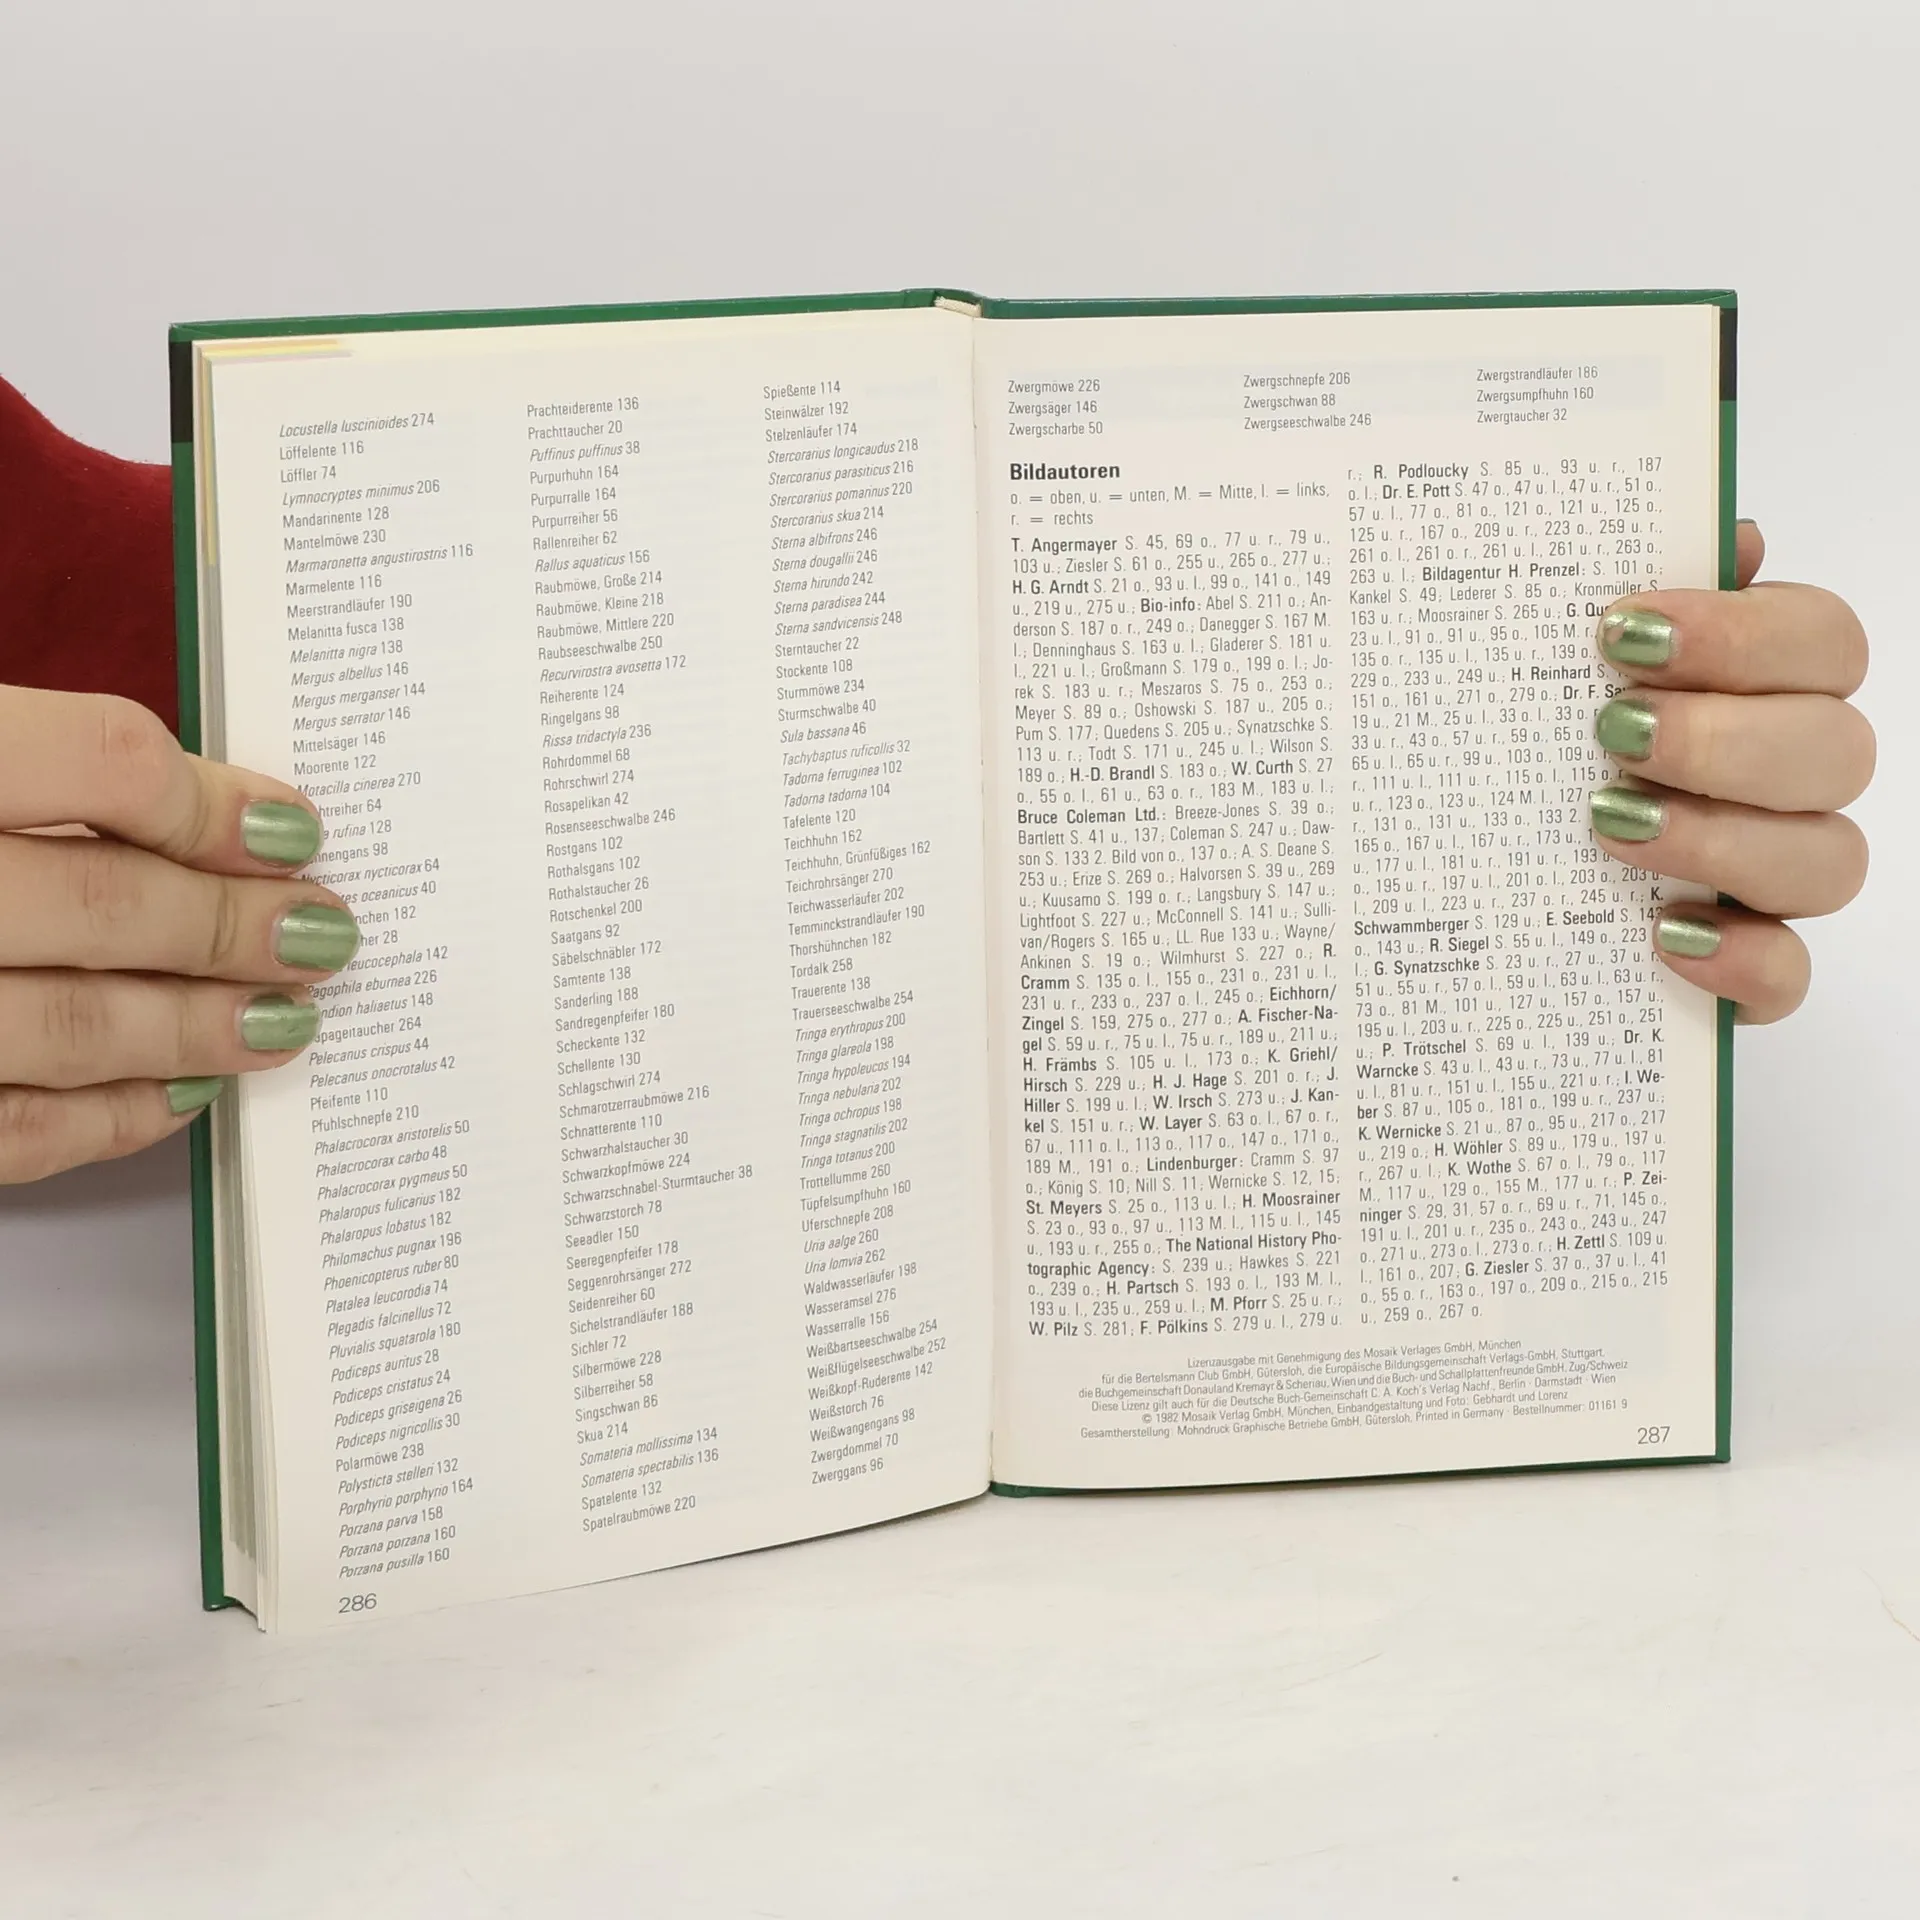 Locustella luscinioides 274
Löffelente 116
Löffler 74
Lymnocryptes minimus 206
Mandarinente 128
Mantelmöwe 230
Marmaronetta angustirostris 116
Marmelente 116
Meerstrandläufer 190
Melanitta fusca 138
Melanitta nigra 138
Mergus albellus 146
Mergus merganser 144
Mergus serrator 146
Mittelsäger 146
Moorente 122
Motacilla cinerea 270
64
rufina 128
98
Nycticorax nycticorax 64
oceanicus 40
182
28
leucocephala 142
Pagophila eburnea 226
haliaetus 148
264
Pelecanus crispus 44
Pelecanus onocrotalus 42
Pfeifente 110
Pfuhlschnepfe 210
Phalacrocorax aristotelis 50
Phalacrocorax carbo 48
Phalacrocorax pygmeus 50
Phalaropus fulicarius 182
Phalaropus lobatus 182
Philomachus pugnax 196
Phoenicopterus ruber 80
Platalea leucorodia 74
Plegadis falcinellus 72
Pluvialis squatarola 180
Podiceps auritus 28
Podiceps cristatus 24
Podiceps griseigena 26
Podiceps nigricollis 30
Polarmöwe 238
Polysticta stelleri 132
Porphyrio porphyrio 164
Porzana parva 158
Porzana porzana 160
Porzana pusilla 160
Prachteiderente 136
Prachttaucher 20
Puffinus puffinus 38
Purpurhuhn 164
Purpurralle 164
Purpurreiher 56
Rallenreiher 62
Rallus aquaticus 156
Raubmöwe, Große 214
Raubmöwe, Kleine 218
Raubmöwe, Mittlere 220
Raubseeschwalbe 250
Recurvirostra avosetta 172
Reiherente 124
Ringelgans 98
Rissa tridactyla 236
Rohrdommel 68
Rohrschwirl 274
Rosapelikan 42
Rosenseeschwalbe 246
Rostgans 102
Rothalsgans 102
Rothalstaucher 26
Rotschenkel 200
Saatgans 92
Säbelschnäbler 172
Samtente 138
Sanderling 188
Sandregenpfeifer 180
Scheckente 132
Schellente 130
Schlagschwirl 274
Schmarotzerraubmöwe 216
Schnatterente 110
Schwarzhalstaucher 30
Schwarzkopfmöwe 224
Schwarzschnabel-Sturmtaucher 38
Schwarzstorch 78
Seeadler 150
Seeregenpfeifer 178
Seggenrohrsänger 272
Seidenreiher 60
Sichelstrandläufer 188
Sichler 72
Silbermöwe 228
Silberreiher 58
Singschwan 86
Skua 214
Somateria mollissima 134
Somateria spectabilis 136
Spatelente 132
Spatelraubmöwe 220
Spießente 114
Steinwälzer 192
Stelzenläufer 174
Stercorarius longicaudus 218
Stercorarius parasiticus 216
Stercorarius pomarinus 220
Stercorarius skua 214
Sterna albifrons 246
Sterna dougallii 246
Sterna hirundo 242
Sterna paradisea 244
Sterna sandvicensis 248
Sterntaucher 22
Stockente 108
Sturmmöwe 234
Sturmschwalbe 40
Sula bassana 46
Tachybaptus ruficollis 32
Tadorna ferruginea 102
Tadorna tadorna 104
Tafelente 120
Teichhuhn 162
Teichhuhn, Grünfüßiges 162
Teichrohrsänger 270
Teichwasserläufer 202
Temminckstrandläufer 190
Thorshühnchen 182
Tordalk 258
Trauerente 138
Trauerseeschwalbe 254
Tringa erythropus 200
Tringa glareola 198
Tringa hypoleucos 194
Tringa nebularia 202
Tringa ochropus 198
Tringa stagnatilis 202
Tringa totanus 200
Trottellumme 260
Tüpfelsumpfhuhn 160
Uferschnepfe 208
Uria aalge 260
Uria lomvia 262
Waldwasserläufer 198
Wasseramsel 276
Wasserralle 156
Weißbartseeschwalbe 254
Weißflügelseeschwalbe 252
Weißkopf-Ruderente 142
Weißstorch 76
Weißwangengans 98
Zwergdommel 70
Zwerggans 96
286
Zwergmöwe 226
Zwergsäger 146
Zwergscharbe 50
Zwergschnepfe 206
Zwergschwan 88
Zwergseeschwalbe 246
Zwergstrandläufer 186
Zwergsumpfhuhn 160
Zwergtaucher 32
Bildautoren
o. = oben, u. = unten, M. = Mitte, l. = links,
r. = rechts
T. Angermayer S. 45, 69 o., 77 u. r., 79 u.,
103 u.; Ziesler S. 61 o., 255 u., 265 o., 277 u.;
H. G. Arndt S. 21 o., 93 u. l., 99 o., 141 o., 149
u., 219 u., 275 u.; Bio-info: Abel S. 211 o.; An-
derson S. 187 o. r., 249 o.; Danegger S. 167 M.
l.; Denninghaus S. 163 u. l.; Gladerer S. 181 u.
l., 221 u. l.; Großmann S. 179 o., 199 o. l.; Jo-
rek S. 183 u. r.; Meszaros S. 75 o., 253 o.;
Meyer S. 89 o.; Oshowski S. 187 u., 205 o.;
Pum S. 177; Quedens S. 205 u.; Synatzschke S.
113 u. r.; Todt S. 171 u., 245 u. l.; Wilson S.
189 o.; H.-D. Brandl S. 183 o.; W. Curth S. 27
o., 55 o. l., 61 u., 63 o. r., 183 M., 183 u. l.;
Bruce Coleman Ltd.: Breeze-Jones S. 39 o.;
Bartlett S. 41 u., 137; Coleman S. 247 u.; Daw-
son S. 133 2. Bild von o., 137 o.; A. S. Deane S.
253 u.; Erize S. 269 o.; Halvorsen S. 39 u., 269
u.; Kuusamo S. 199 o. r.; Langsbury S. 147 u.;
Lightfoot S. 227 u.; McConnell S. 141 u.; Sulli-
van/Rogers S. 165 u.; LL. Rue 133 u.; Wayne/
Ankinen S. 19 o.; Wilmhurst S. 227 o.; R.
Cramm S. 135 o. l., 155 o., 231 o., 231 u. l.,
231 u. r., 233 o., 237 o. l., 245 o.; Eichhorn/
Zingel S. 159, 275 o., 277 o.; A. Fischer-Na-
gel S. 59 u. r., 75 u. l., 75 u. r., 189 u., 211 u.;
H. Främbs S. 105 u. l., 173 o.; K. Griehl/
Hirsch S. 229 u.; H. J. Hage S. 201 o. r.; J.
Hiller S. 199 u. l.; W. Irsch S. 273 u.; J. Kan-
kel S. 151 u. r.; W. Layer S. 63 o. l., 67 o. r.,
67 u., 111 o. l., 113 o., 117 o., 147 o., 171 o.,
189 M., 191 o.; Lindenburger: Cramm S. 97
o.; König S. 10; Nill S. 11; Wernicke S. 12, 15;
St. Meyers S. 25 o., 113 u. l.; H. Moosrainer
S. 23 o., 93 o., 97 u., 113 M. l., 115 u. l., 145
u., 193 u. r., 255 o.; The National History Pho-
tographic Agency: S. 239 u.; Hawkes S. 221
o., 239 o.; H. Partsch S. 193 o. l., 193 M. l.,
193 u. l., 235 u., 259 u. l.; M. Pforr S. 25 u. r.;
W. Pilz S. 281; F. Pölkins S. 279 u. l., 279 u.
r.; R. Podloucky S. 85 u., 93 u. r., 187
o. l.; Dr. E. Pott S. 47 o., 47 u. l., 47 u. r., 51 o.,
57 u. l., 77 o., 81 o., 121 o., 121 u., 125 o.,
125 u. r., 167 o., 209 u. r., 223 o., 259 u. r.,
261 o. l., 261 o. r., 261 u. l., 261 u. r., 263 o.,
263 u. l.; Bildagentur H. Prenzel: S. 101 o.;
Kankel S. 49; Lederer S. 85 o.; Kronmüller S.
163 u. r.; Moosrainer S. 265 u.; G.
23 u. l., 91 o., 91 u., 95 o., 105 M. r.,
135 o. r., 135 u. l., 135 u. r., 139 o.,
229 o., 233 u., 249 u.; H. Reinhard S.
151 o., 161 u., 271 o., 279 o.; Dr. F.
19 u., 21 M., 25 u. l., 33 o. l., 33 o.
33 u. r., 43 o., 57 u. r., 59 o., 65 o.
65 u. l., 65 u. r., 99 u., 103 o., 109 u.
r., 111 u. l., 111 u. r., 115 o. l., 115 o.
u. r., 123 o., 123 u., 124 M. l., 127
r., 131 o., 131 u., 133 o., 133 2.
165 o., 167 u. l., 167 u. r., 173 u.,
u., 177 u. l., 181 u. r., 191 u. r., 193
o., 195 u. r., 197 u. l., 201 o. l., 203 o., 203 u.
l., 209 u. l., 223 u. r., 237 o. r., 245 u. r.; K.
Schwammberger S. 129 u.; E. Seebold S. 143
o., 143 u.; R. Siegel S. 55 u. l., 149 o., 223
l.; G. Synatzschke S. 23 u. r., 27 u., 37 u. r.,
51 u., 55 u. r., 57 o. l., 59 u. l., 63 u. l., 63 u. r.,
73 o., 81 M., 101 u., 127 u., 157 o., 157 u.,
195 u. l., 203 u. r., 225 o., 225 u., 251 o., 251
u.; P. Trötschel S. 69 u. l., 139 u.; Dr. K.
Warncke S. 43 u. l., 43 u. r., 73 u., 77 u. l., 81
u. l., 81 u. r., 151 u. l., 155 u., 221 u. r.; I. We-
ber S. 87 u., 105 o., 181 o., 199 u. r., 237 u.;
K. Wernicke S. 21 u., 87 o., 95 u., 217 o., 217
u., 219 o.; H. Wöhler S. 89 u., 179 u., 197 u.
r., 267 u. l.; K. Wothe S. 67 o. l., 79 o., 117
M., 117 u., 129 o., 155 M., 177 u. r.; P. Zei-
ninger S. 29, 31, 57 o. r., 69 u. r., 71, 145 o.,
191 u. l., 201 u. r., 235 o., 243 o., 243 u., 247
o., 271 u., 273 o. l., 273 o. r.; H. Zettl S. 109 u.
l., 161 o., 207; G. Ziesler S. 37 o., 37 u. l., 41
o., 55 o. r., 163 o., 197 o., 209 o., 215 o., 215
u., 259 o., 267 o.
Lizenzausgabe mit Genehmigung des Mosaik Verlages GmbH, München
für die Bertelsmann Club GmbH, Gütersloh, die Europäische Bildungsgemeinschaft Verlags-GmbH, Stuttgart,
die Buchgemeinschaft Donauland Kremayr & Scheriau, Wien und die Buch- und Schallplattenfreunde GmbH, Zug/Schweiz
Diese Lizenz gilt auch für die Deutsche Buch-Gemeinschaft C. A. Koch's Verlag Nachf., Berlin · Darmstadt · Wien
© 1982 Mosaik Verlag GmbH, München, Einbandgestaltung und Foto: Gebhardt und Lorenz
Gesamtherstellung: Mohndruck Graphische Betriebe GmbH, Gütersloh. Printed in Germany · Bestellnummer: 01161 9
287